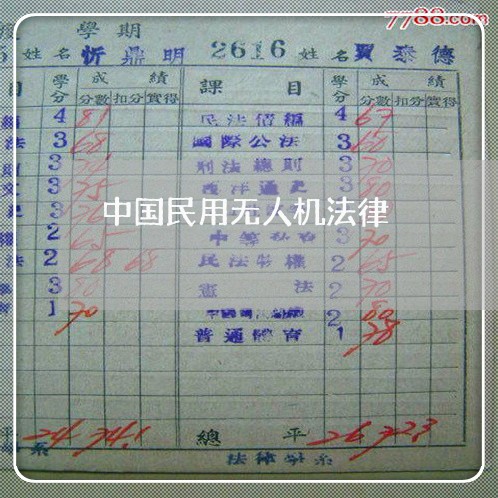 7788.com
學期
姓名 忻鼎明 2616 姓名 賈泰德
目 學分 成績 課目 學分 成績
分數 扣分 實得 分數 扣分 實得
4 81 民法債編 4 67
法 3 68 國際公法 3 60
3 刑法總則 3 70
3 75 西洋通史 3 80
3
中国民用无人机法律
2 65 3 70
法 2 68 68 民法物權 2 65
3 80 憲法 2 70
1 70 2 80
普通體育 1 78
平 24 74.1 總平 26 72.3
系 法律學系